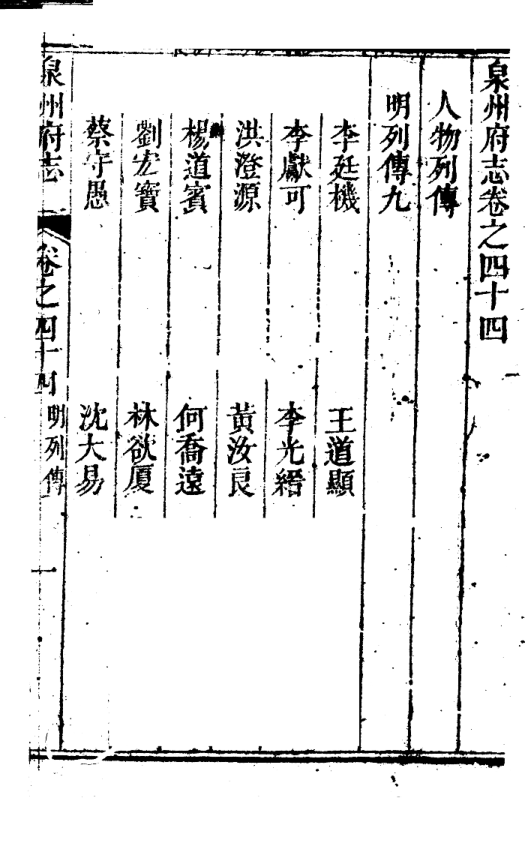 泉州府志卷之四十四
人物列傳
明列傳九
李廷機
王道顯
李獻可
李光縉
洪澄源
黃汝良
楊道賓
何喬遠
劉宏寶
林欲厦
蔡守愚
沈大易
泉州府志
卷之四十四
明列傳
一